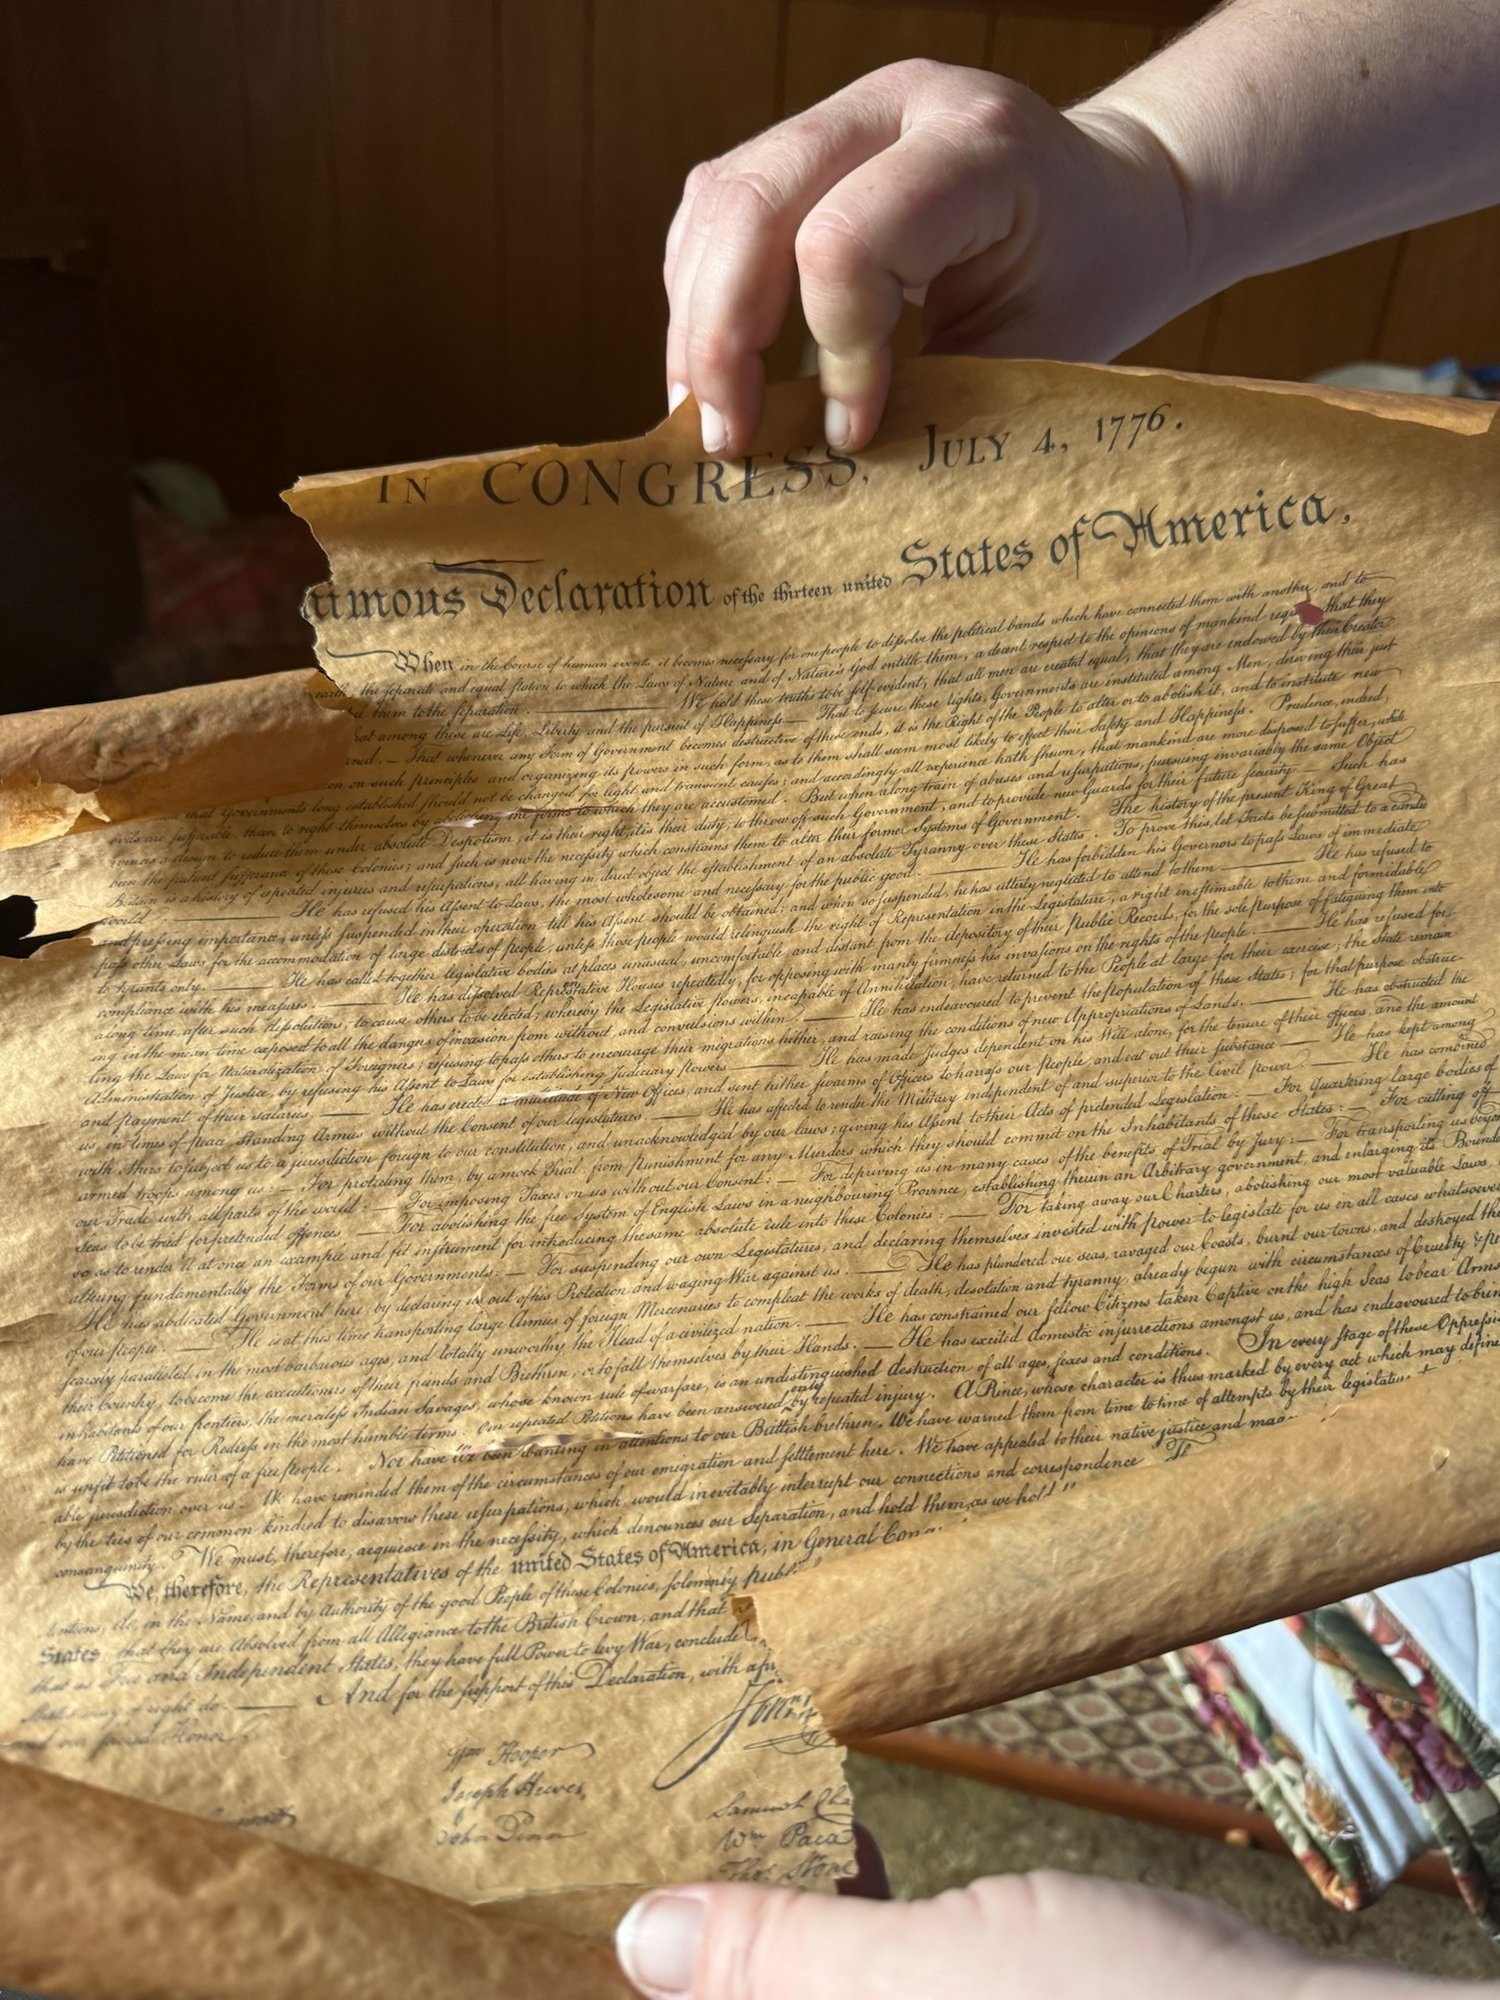 IN CONGRESS, JULY 4, 1776.
imous Declaration of the thirteen united States of America,
When in the Course of human events it becomes necessary for one people to dissolve the political bands which have connected them with another, and to
earth, the separate and equal station to which the Laws of Nature and of Nature's God entitle them, a decent respect to the opinions of mankind requ that they
them to the separation. We hold these truths to be self-evident, that all men are created equal, that they are endowed by their Creator
that among these are Life, Liberty and the pursuit of Happiness — That to secure these rights, Governments are instituted among Men, deriving their just
rned, — That whenever any Form of Government becomes destructive of these ends, it is the Right of the People to alter or to abolish it, and to institute new
on such principles and organizing its powers in such form, as to them shall seem most likely to effect their Safety and Happiness. Prudence, indeed,
that Governments long established should not be changed for light and transient causes; and accordingly all experience hath shewn, that mankind are more disposed to suffer, while
evils are sufferable, than to right themselves by abolishing the forms to which they are accustomed. But when a long train of abuses and usurpations, pursuing invariably the same Object
evinces a design to reduce them under absolute Despotism, it is their right, it is their duty, to throw off such Government, and to provide new Guards for their future security. — Such has
been the patient sufferance of these Colonies; and such is now the necessity which constrains them to alter their former Systems of Government. The history of the present King of Great
Britain is a history of repeated injuries and usurpations, all having in direct object the establishment of an absolute Tyranny over these States. To prove this, let Facts be submitted to a candid
world. He has refused his Assent to Laws, the most wholesome and necessary for the public good. He has forbidden his Governors to pass Laws of immediate
and pressing importance, unless suspended in their operation till his Assent should be obtained; and when so suspended, he has utterly neglected to attend to them. He has refused to
pass other Laws for the accommodation of large districts of people, unless those people would relinquish the right of Representation in the Legislature, a right inestimable to them and formidable
to tyrants only. He has called together legislative bodies at places unusual, uncomfortable, and distant from the depository of their Public Records, for the sole purpose of fatiguing them into
compliance with his measures. He has dissolved Representative Houses repeatedly, for opposing with manly firmness his invasions on the rights of the people. He has refused for
a long time, after such dissolutions, to cause others to be elected; whereby the Legislative powers, incapable of Annihilation, have returned to the People at large for their exercise; the State remain
ing in the mean time exposed to all the dangers of invasion from without, and convulsions within. He has endeavoured to prevent the population of these States; for that purpose obstruc
ting the Laws for Naturalization of Foreigners; refusing to pass others to encourage their migrations hither, and raising the conditions of new Appropriations of Lands. He has obstructed the
Administration of Justice, by refusing his Assent to Laws for establishing Judiciary powers. He has made Judges dependent on his Will alone, for the tenure of their offices, and the amount
and payment of their salaries. He has erected a multitude of New Offices, and sent hither swarms of Officers to harrass our People, and eat out their substance. He has kept among
us, in times of peace, Standing Armies without the Consent of our legislatures. He has affected to render the Military independent of and superior to the Civil power. He has combined
with others to subject us to a jurisdiction foreign to our constitution, and unacknowledged by our laws; giving his Assent to their Acts of pretended Legislation: — For quartering large bodies of
armed troops among us: — For protecting them, by a mock Trial, from punishment for any Murders which they should commit on the Inhabitants of these States: — For cutting off
our Trade with all parts of the world: — For imposing Taxes on us without our Consent: — For depriving us in many cases, of the benefits of Trial by Jury: — For transporting us beyond
Seas to be tried for pretended offences — For abolishing the free System of English Laws in a neighbouring Province, establishing therein an Arbitrary government, and enlarging its Bounda
so as to render it at once an example and fit instrument for introducing the same absolute rule into these Colonies: — For taking away our Charters, abolishing our most valuable Laws,
altering fundamentally the Forms of our Governments: — For suspending our own Legislatures, and declaring themselves invested with power to legislate for us in all cases whatsoever
He has abdicated Government here, by declaring us out of his Protection and waging War against us. He has plundered our seas, ravaged our Coasts, burnt our towns, and destroyed the
of our people. He is at this time transporting large Armies of foreign Mercenaries to compleat the works of death, desolation and tyranny, already begun with circumstances of Cruelty & pe
scarcely paralleled in the most barbarous ages, and totally unworthy the Head of a civilized nation. He has constrained our fellow Citizens taken Captive on the high Seas to bear Arms
their Country, to become the executioners of their friends and Brethren, or to fall themselves by their Hands. He has excited domestic insurrections amongst us, and has endeavoured to brin
inhabitants of our frontiers, the merciless Indian Savages, whose known rule of warfare, is an undistinguished destruction of all ages, sexes and conditions. In every stage of these Oppressi
have Petitioned for Redress in the most humble terms: Our repeated Petitions have been answered only by repeated injury. A Prince, whose character is thus marked by every act which may define
is unfit to be the ruler of a free people. Nor have we been wanting in attentions to our Brittish brethren. We have warned them from time to time of attempts by their legislatu
able jurisdiction over us. We have reminded them of the circumstances of our emigration and settlement here. We have appealed to their native justice and mag
by the ties of our common kindred to disavow these usurpations, which, would inevitably interrupt our connections and correspondence. Th
consanguinity. We must, therefore, acquiesce in the necessity, which denounces our Separation, and hold them, as we hold
We, therefore, the Representatives of the united States of America, in General Con
tentions, do, in the Name, and by Authority of the good People of these Colonies, solemnly publ
States; that they are Absolved from all Allegiance to the British Crown, and that
that as Free and Independent States, they have full Power to levy War, conclude
States may of right do. And for the support of this Declaration, with a fir
and our sacred Honor.
John
Wm Hooper
Joseph Hewes,
John Penn
Samuel Cha
Wm Paca
Thos Stone